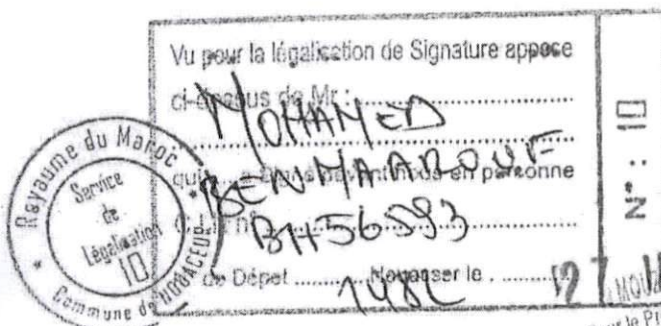 Vu pour la légalisation de Signature appose
ci-dessus de Mr :
MOHAMED
BENMAAROUF
en personne
BH56593
de Dépet ......... Nouasser le .........
1482
N° : 10
Royaume du Maroc
Service
de
Légalisation
10
Commune de NOUACEUR